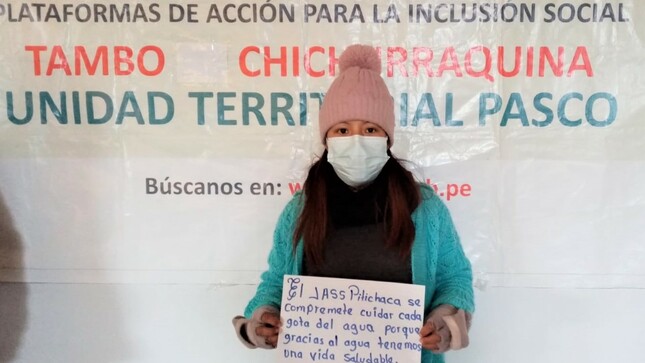 PLATAFORMAS DE ACCIÓN PARA LA INCLUSIÓN SOCIAL
TAMBO
UNIDAD PASCO
Búscanos en:
El JASS Pilichaca se
compromete cuidar cada
gota del agua porque
gracias al agua tenemos
una vida saludable.